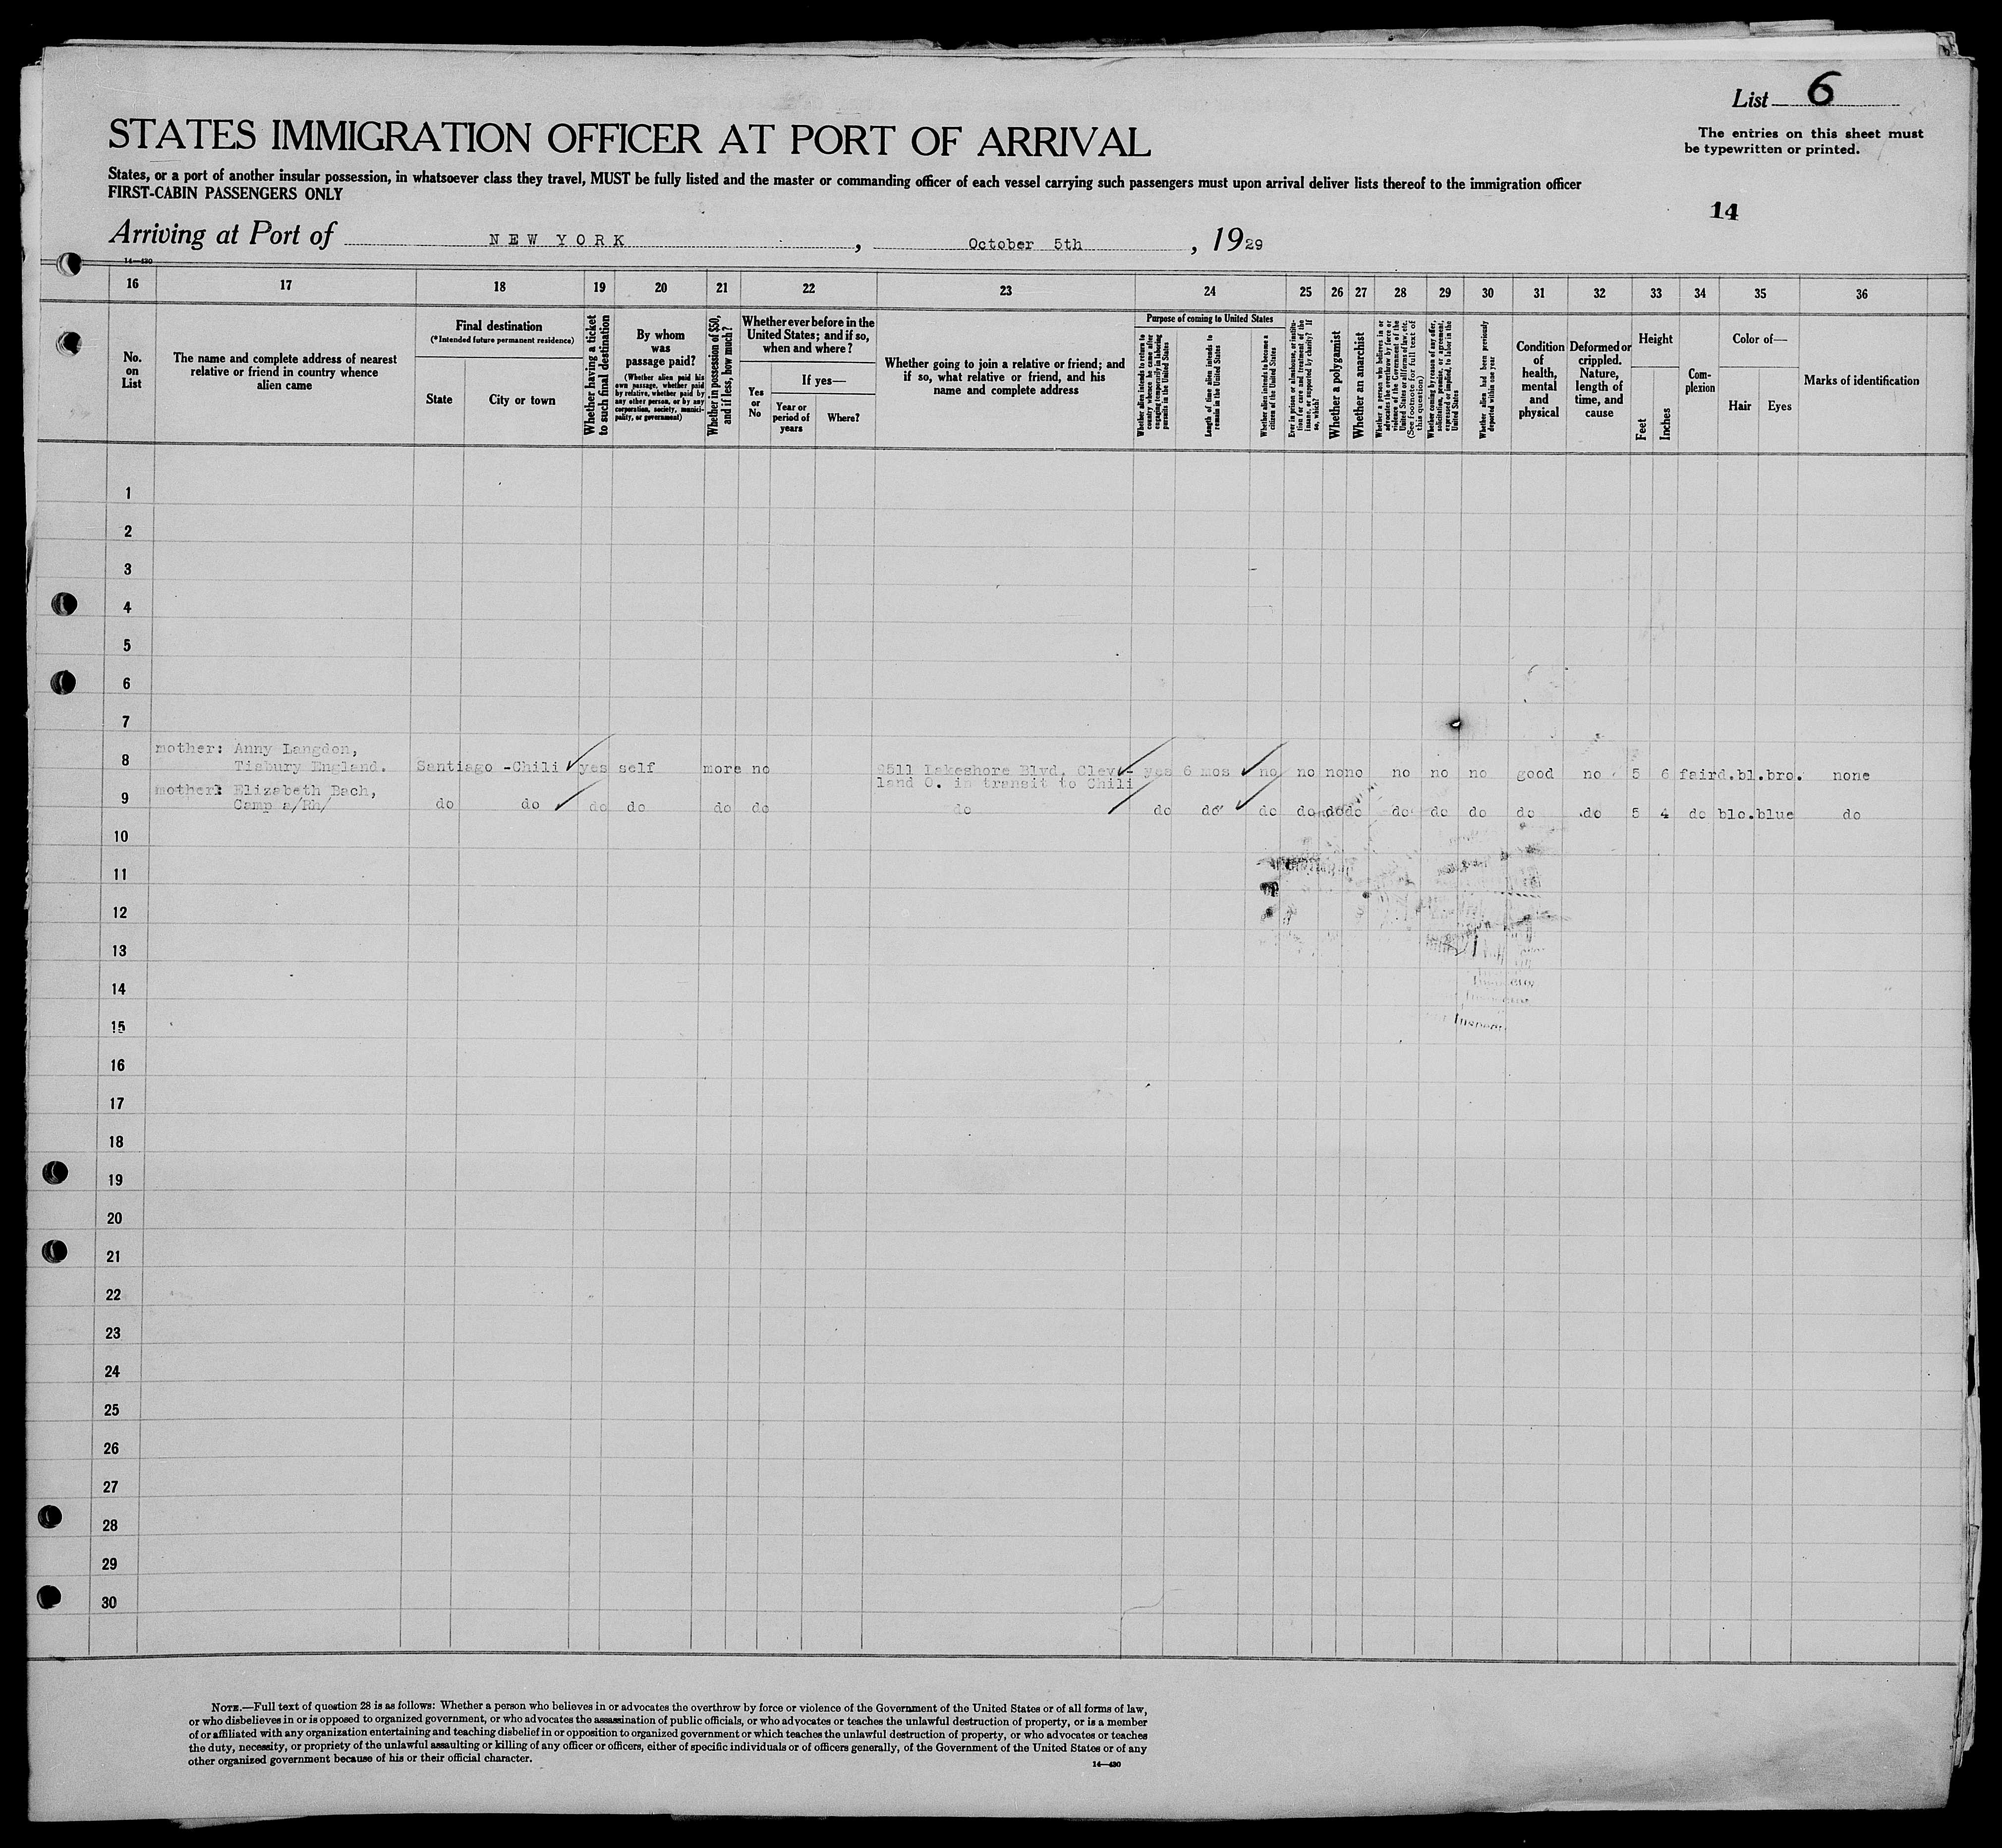 List 6
The entries on this sheet must
be typewritten or printed.
STATES IMMIGRATION OFFICER AT PORT OF ARRIVAL
States, or a port of another insular possession, in whatsoever class they travel, MUST be fully listed and the master or commanding officer of each vessel carrying such passengers must upon arrival deliver lists thereof to the immigration officer
FIRST-CABIN PASSENGERS ONLY
14
Arriving at Port of NEW YORK, October 5th, 1929
14—430
16 17 18 19 20 21 22 23 24 25 26 27 28 29 30 31 32 33 34 35 36
No. on List
The name and complete address of nearest
relative or friend in country whence
alien came
Final destination
(*Intended future permanent residence)
State
City or town
Whether having a ticket
to such final destination
By whom
was
passage paid?
(Whether alien paid his
own passage, whether paid
by relative, whether paid by
any other person, or by any
corporation, society, munici-
pality, or government)
Whether in possession of $50,
and if less, how much?
Whether ever before in the
United States; and if so,
when and where?
Yes
or
No
If yes—
Year or
period of
years
Where?
Whether going to join a relative or friend; and
if so, what relative or friend, and his
name and complete address
Purpose of coming to United States
Whether alien intends to return to
country whence he came after
engaging temporarily in laboring
pursuits in the United States
Length of time alien intends to
remain in the United States
Whether alien intends to become a
citizen of the United States
Ever in prison or almshouse or institu-
tion for care and treatment of the
insane, or supported by charity? If
so, which?
Whether a polygamist
Whether an anarchist
Whether a person who believes in or
advocates the overthrow by force or
violence of the Government of the
United States or all forms of law, etc.
(See footnote for full text of
this question)
Whether coming by reason of any offer,
solicitation, promise, or agreement,
expressed or implied, to labor in the
United States
Whether alien had been previously
deported within one year
Condition
of
health,
mental
and
physical
Deformed or
crippled.
Nature,
length of
time, and
cause
Height
Feet
Inches
Com-
plexion
Color of—
Hair
Eyes
Marks of identification
1
2
3
4
5
6
7
mother: Anny Langdon,
8 Tisbury England. Santiago -Chili yes self more no 6511 Lakeshore Blvd. Cleve- yes 6 mos no no no no no no no good no 5 6 fair d.bl. bro. none
land O. in transit to Chili
mother: Elizabeth Bach,
9 Camp a/Rh/ do do do do do do do do do do do do do do do do do do 5 4 do blo. blue do
10
11
12
13
14
15
16
17
18
19
20
21
22
23
24
25
26
27
28
29
30
NOTE.—Full text of question 28 is as follows: Whether a person who believes in or advocates the overthrow by force or violence of the Government of the United States or of all forms of law,
or who disbelieves in or is opposed to organized government, or who advocates the assassination of public officials, or who advocates or teaches the unlawful destruction of property, or is a member
of or affiliated with any organization entertaining and teaching disbelief in or opposition to organized government or which teaches the unlawful destruction of property, or who advocates or teaches
the duty, necessity, or propriety of the unlawful assaulting or killing of any officer or officers, either of specific individuals or of officers generally, of the Government of the United States or of any
other organized government because of his or their official character.
14—430